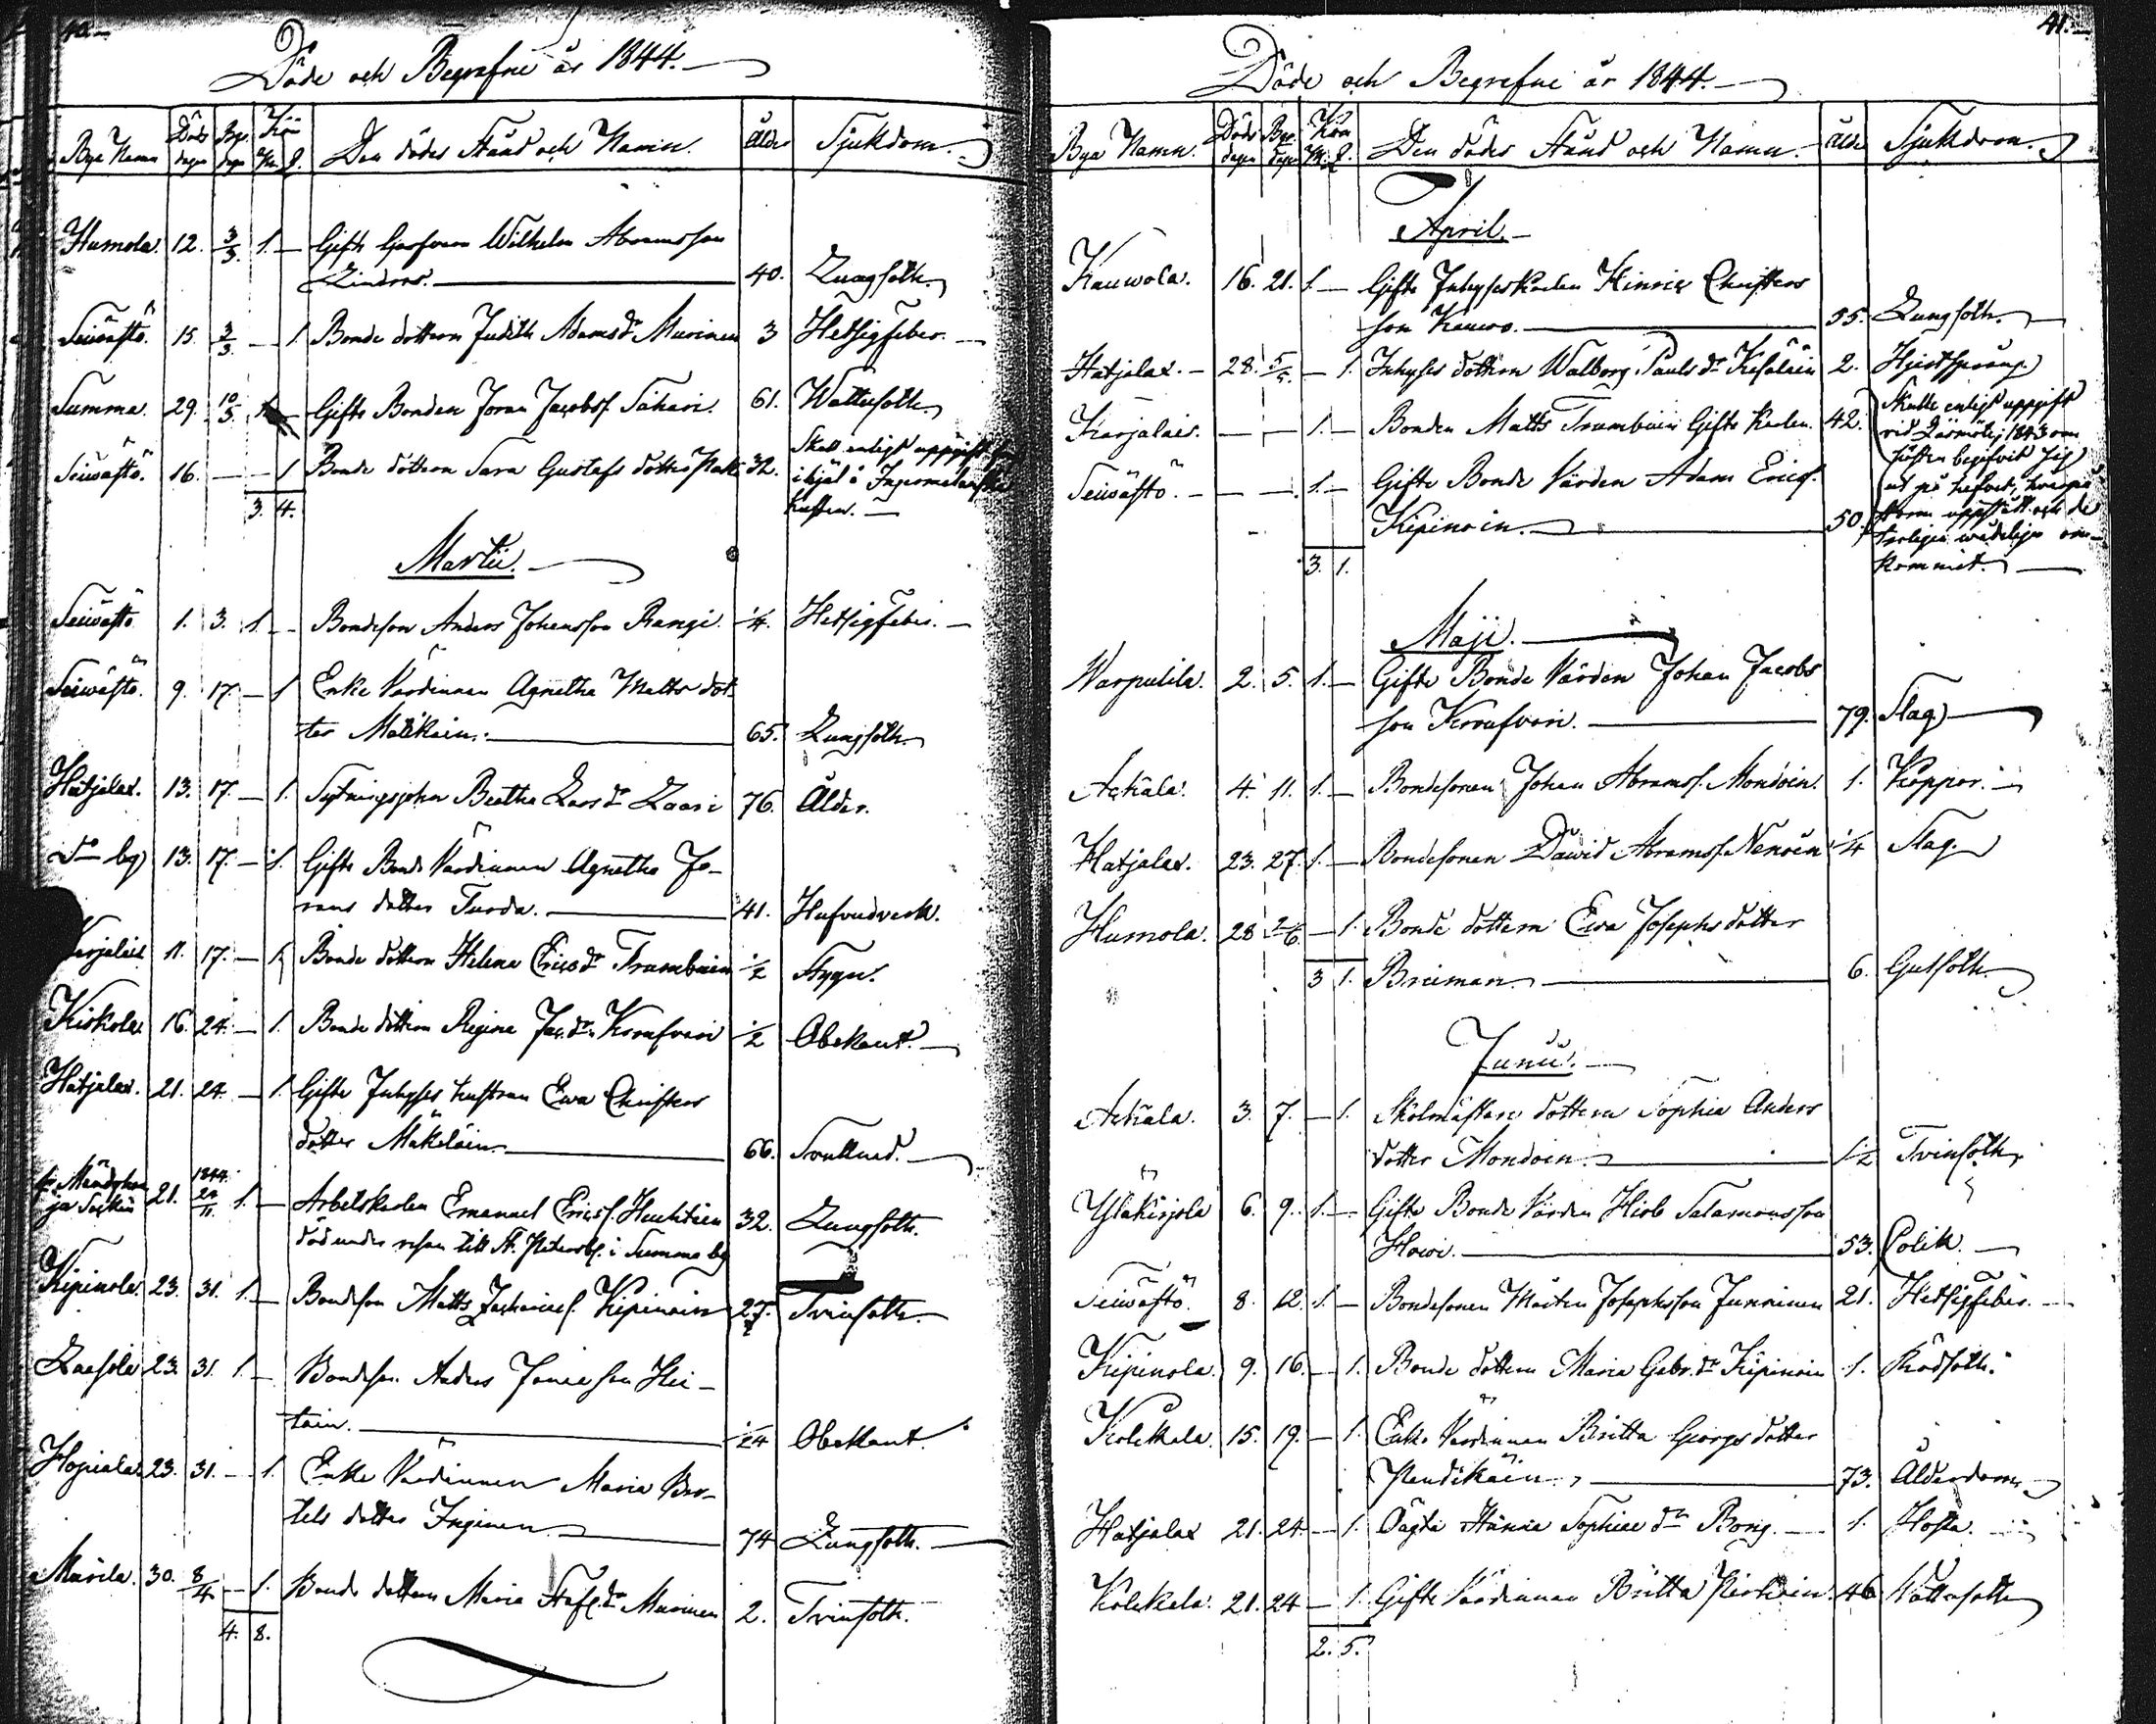 40.
Döde och Begrafne år 1844.
Bya Namn Döds dagen Begr. dagen Kön M. Q. Den dödes Stånd och Namn. Ålder Sjukdom.
Humola. 12. 3/3. 1. — Gifte Wilhelm Abramsson
Lindros. 40. Lungsoth.
Seiwästö. 15. 3/3. — 1. Bonde dottern Judith Adams dr Murinen 3 Hetsigfeber.
Summa. 29. 10/3. 1. Gifte Bonden Joran Jacobss. 61. Wattusoth.
Seiwästö. 16. — — 1 Bonde dottern Sara Gustafs dotter 32. Skall enligt uppgift
ihjäl å
kusten.
3. 4.
Martii.
Seiwästö 1. 3. 1. — Bondeson Anders Johansson Rangi. 1/4. Hetsigfeber.
Seiwästö. 9. 17. — 1 Enke Värdinnan Agnetha Matts dot-
ter 65. Lungsoth.
Hatjalax. 13. 17. — 1. Beatha Lars dr Laari 76. Ålder.
do by 13. 17. — 1. Gifte Bond Värdinnan Agnetha Jo-
rans dotter Turda. 41. Hufvudverk.
Karjalais 11. 17. — 1. Bonde dottern Helena Erics dr 1/2 Stygn.
Kiskola 16. 24. — 1. Bonde dottern Regina Jac. dr 1/2 Obekant.
Hatjalax. 21. 24. — 1. Gifte Inhyses hustrun Ewa Christers
dotter Mäkeläin. 66. Svullnad.
21. 1844 1. — Arbetskarlen Emanuel Ericss. 32. Lungsoth.
död under resan till St. Petersbg. i Summa by
Kipinola. 23. 31. 1. — Bondeson Matts Zachariss. Kipinoin 27. Tvinsoth.
23. 31. 1. — Bondeson Anders
tain. 1/24 Obekant.
23. 31. — 1. Enke Värdinnan Maria Ber-
tels dotter Inginen 74 Lungsoth.
Murila. 30. 8/4 — 1. Bonde dottern Maria Staf. dr Murinen 2. Tvinsoth.
4. 8.
41.
Döde och Begrafne år 1844.
Bya Namn. Döds dagen Begr. dagen Kön M. Q. Den dödes Stånd och Namn. Ålder Sjukdom.
April.
Kauwola. 16. 21. 1. — Gifte Inhyseskarlen Hinric Christers
son Kauwo. 55. Lungsoth.
Hatjalax. 28. 5/5. — 1. Inhyses dottern Walborg Pauls dr 2. Hjertsprång
Karjalais. — — 1. — Bonden Matts Gifte Karlen. 42. Skulle enligt uppgift
vid 1843 om
hösten begifvit sig
Seiwästö. — — 1. — Gifte Bonde Värden Adam Ericss. ut på hafvet,
Kipinoin. 50. storm uppstått och de
kommit.
3. 1.
Maji.
Warpulila. 2. 5. 1. — Gifte Bonde Värden Johan Jacobs
son 79. Slag
Achäla. 4. 11. 1. — Bondesonen Johan Abramss. Mondoin. 1. Koppor.
Hatjalax. 23. 27. 1. — Bondesonen David Abramss. 1/4 Slag.
Humola. 28 2/6. — 1. Bonde dottern Ewa Josephs dotter
3 1. 6. Gulsoth.
Junii.
Achäla. 3. 7. — 1. Skolmästare dottern Sophia Anders
dotter Mondoin. 1/2 Tvinsoth.
Yläkirjola 6. 9. 1. — Gifte Bonde Värden Hiob Salamonsson
Howi. 53. Colik.
Seiwästö. 8. 12. 1. — Bondesonen Mårten Josephsson Junninen 21. Hetsigfeber.
Kipinola. 9. 16. — 1. Bonde dottern Maria Gabr. dr Kipinoin 1. Rödsoth.
Kolckala. 15. 19. — 1. Enke Värdinnan Britta Georgs dotter
Pendikäin. 73. Ålderdom.
Hatjalax 21. 24. — 1. Oägta Sophiae dr Bong. 1. Hosta.
Kolckala. 21. 24 — 1. Gifte Värdinnan Britta 46 Wattusoth
2. 5.